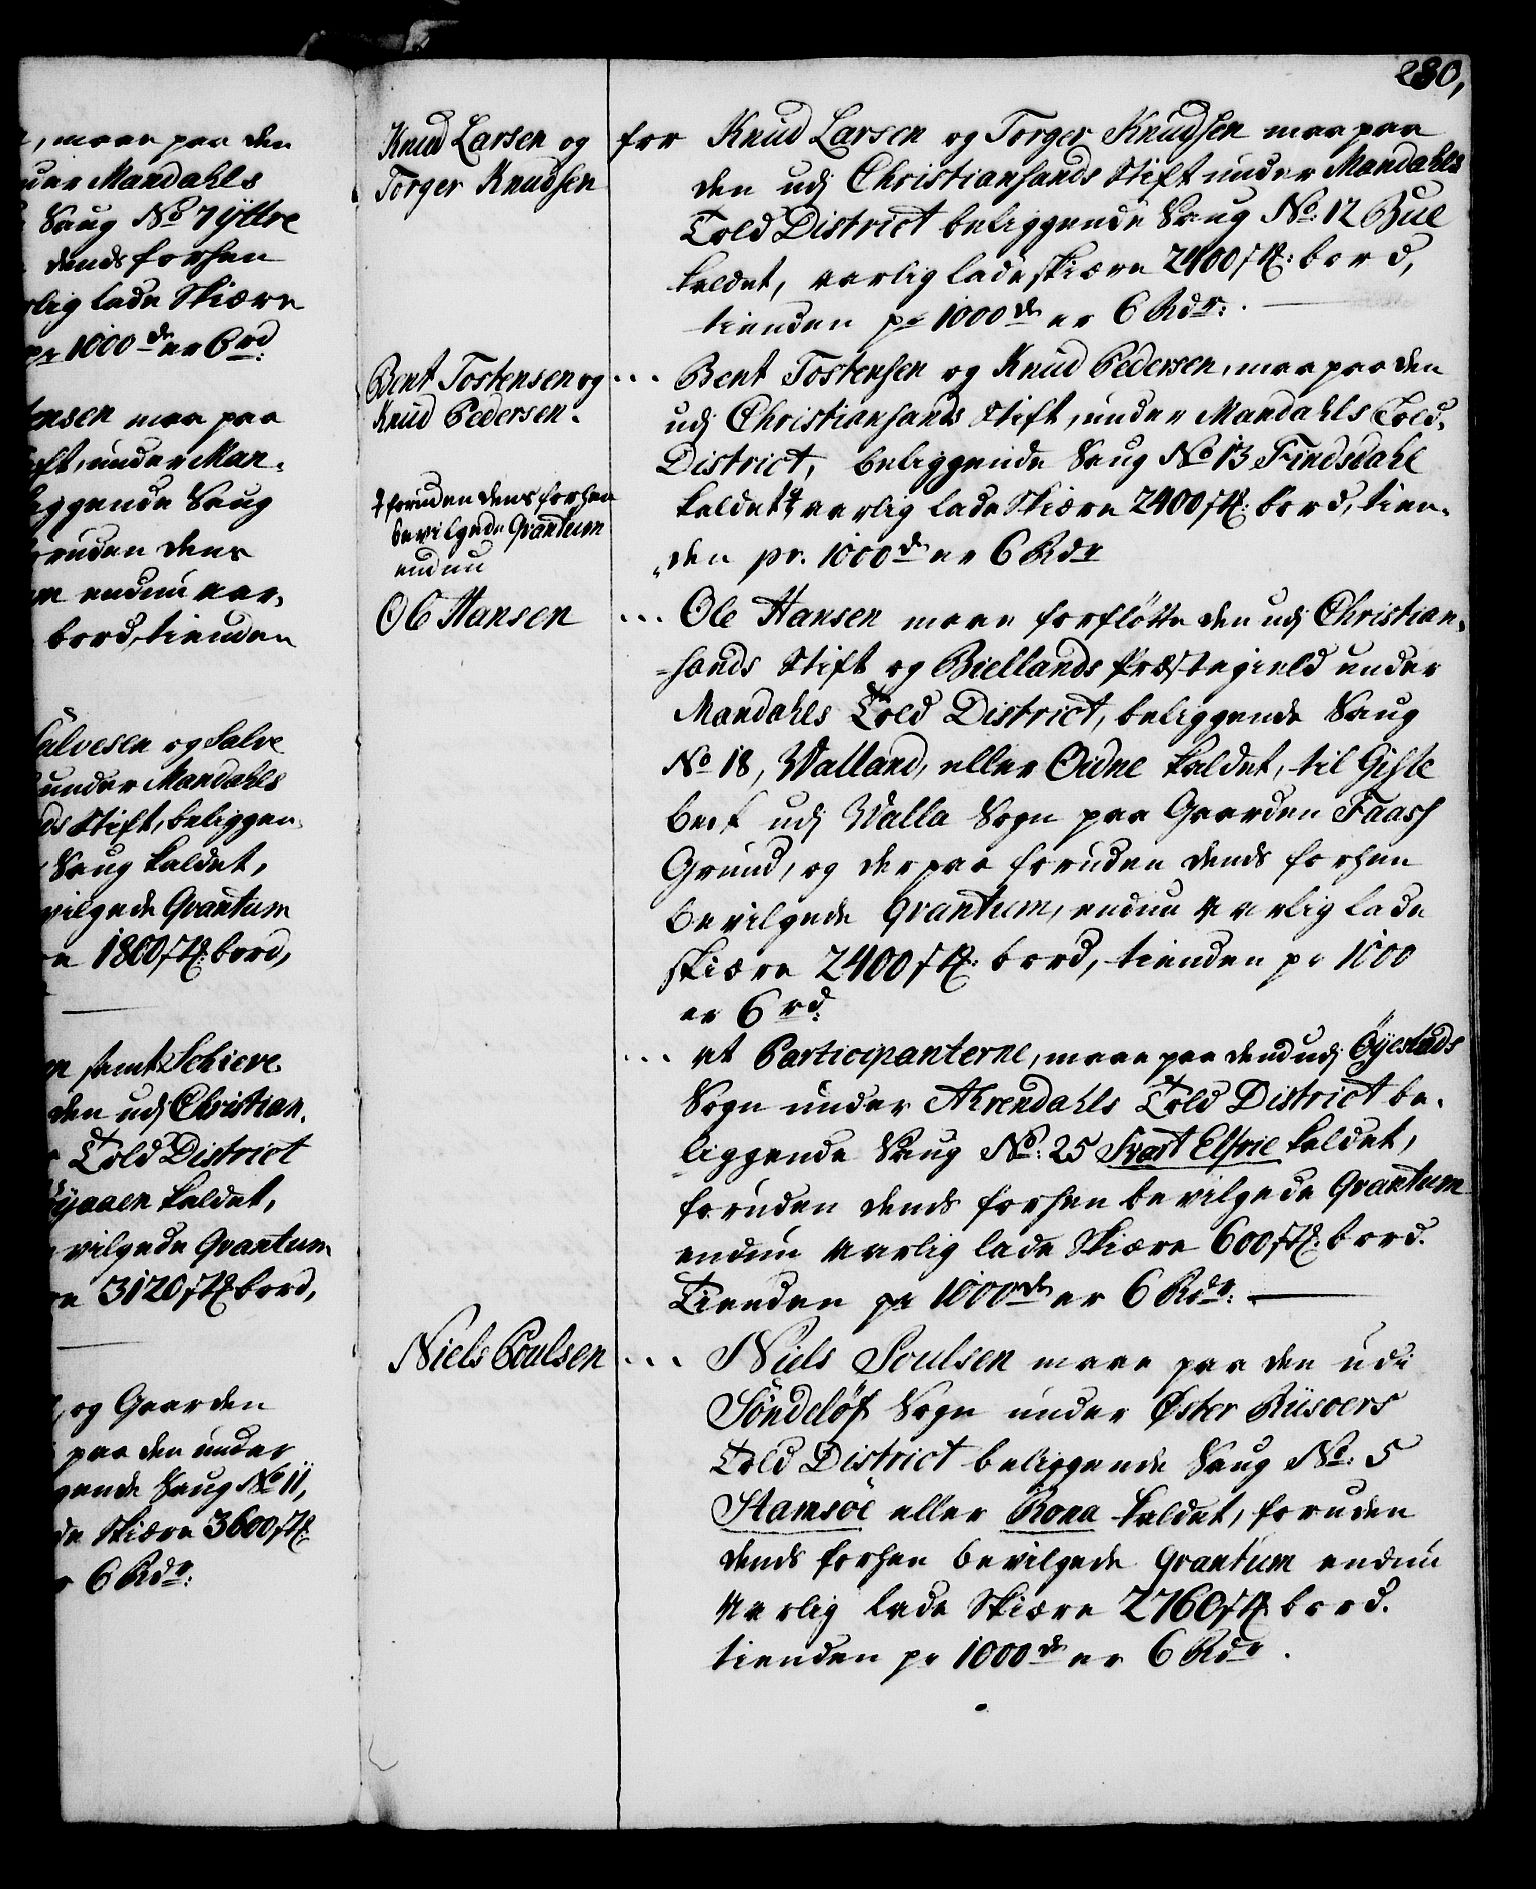 280,
, maae paa den
under Mandahls
Saug No 7 ÿttre
dends forhen
rlig lade Skiære
pr 1000 de er 6 rd:
tensen maa paa
ift, under Man-
liggende Saug
foruden dens
endnu aar-
bord, tienden
Salvesen og Salve
under Mandahls
ds Stift, beliggen-
Saug kaldet,
vilgede Qvantum
1800 stk: bord,
samt Schieve
den udj Christian-
Told District
kaldet,
vilgede Qvantum
3120 stk bord,
og Gaarden
paa den under
gende Saug No 11,
de Skiære 3600 stk
6 Rdr:
Knud Larsen og
Torger Knudsen
for Knud Larsen og Torger Knudsen maa paa
den udj Christiansands Stift under Mandahls
Told District beliggende Saug No. 12 Bue
kaldet, aarlig lade skiære 2400 stk: bord,
tienden pr 1000 de er 6 Rdr:
Bent Tostensen og
Knud Pedersen.
... Bent Tostensen og Knud Pedersen, maa paa den
udj Christiansands Stift, under Mandahls Told-
District, beliggende Saug No 13 Findsdahl
kaldet ‡ aarlig lade Skiære 2400 stk: bord, tien-
den pr. 1000 de er 6 Rdr
‡ foruden dens forhen
bevilgede Qvantum
endnu
Ole Hansen
... Ole Hansen maae forfløtte den udj Christian-
sands Stift og Biellands Præstegield under
Mandahls Told District, beliggende Saug
No 18, Walland, eller Oidne kaldet, til Gisle
bek udj Walla Sogn paa Gaarden Faass
Grund, og derpaa foruden dends forhen
bevilgede Qvantum, endnu aarlig lade
skiære 2400 stk. bord, tienden pr 1000
er 6 rd:
... at Participanterne, maae paa den udj Öÿestads
Sogn under Ahrendahls Told District be-
liggende Saug No: 25 Svart Elfvie kaldet,
foruden dends forhen bevilgede Qvantum
endnu aarlig lade Skiære 600 stk: bord.
Tienden pr 1000 de er 6 Rdr:
Niels Poulsen
... Niels Poulsen maae paa den udi
Söndelöf Sogn under Øster Riisoers
Told District beliggende Saug No: 5
Stamsöe eller Rona kaldet, foruden
dends forhen bevilgede Qvantum endnu
Aarlig lade Skiære 2760 stk bord.
tienden pr 1000 de er 6 Rdr.